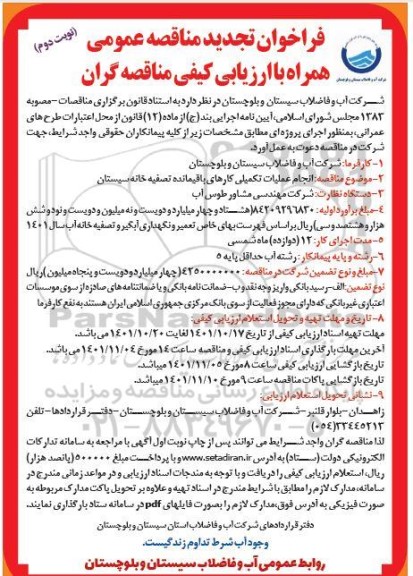 (نوبت دوم)
فراخوان تجدید مناقصه عمومی
همراه با ارزیابی کیفی مناقصه گران
شرکت آب و فاضلاب سیستان و بلوچستان در نظر دارد به استناد قانون برگزاری مناقصات - مصوبه
۱۳۸۳ مجلس شورای اسلامی، آیین نامه اجرایی بند (ج) از ماده (۱۲) قانون از محل اعتبارات طرح های
عمرانی، بمنظور اجرای پروژه ای مطابق مشخصات زیر از کلیه پیمانکاران حقوقی واجد شرایط، جهت
شرکت در مناقصه دعوت به عمل آورد.
۱- کارفرما: شرکت آب و فاضلاب سیستان و بلوچستان
۲- موضوع مناقصه: انجام عملیات تکمیلی کارهای باقیمانده تصفیه خانه سیستان
۳- دستگاه نظارت: شرکت مهندسی مشاور طوس آب
۴- مبلغ برآورد اولیه: ۸۴۲۰۹۲۹۶۸۳۰ (هشتاد و چهار میلیارد و دویست و نه میلیون و دویست و نود و شش
هزار و هشتصد و سی) ریال براساس فهرست بهای خاص تعمیر و نگهداری آبگیر و تصفیه خانه آب سال ۱۴۰۱
۵- مدت اجرای کار: ۱۲ (دوازده) ماه شمسی
۶- رشته و پایه پیمانکار: رشته آب حداقل پایه ۵
۷- مبلغ و نوع تضمین شرکت در مناقصه: ۴۲۵۰۰۰۰۰۰۰ (چهار میلیارد و دویست و پنجاه میلیون) ریال
نوع تضمین: الف- رسید بانکی واریز وجه نقد و ب- ضمانت نامه بانکی و یا ضمانتنامه های صادره از سوی موسسات
اعتباری غیر بانکی که دارای مجوز فعالیت از سوی بانک مرکزی جمهوری اسلامی ایران هستند به نفع کارفرما
۸- تاریخ و مهلت تهیه و تحویل استعلام ارزیابی کیفی:
مهلت تهیه اسناد ارزیابی کیفی از تاریخ ۱۴۰۱/۱۰/۱۷ لغایت ۱۴۰۱/۱۰/۲۰ می باشد.
آخرین مهلت بارگذاری اسناد ارزیابی کیفی و مناقصه ساعت ۱۴ مورخ ۱۴۰۱/۱۱/۰۴ می باشد.
تاریخ بازگشایی ارزیابی کیفی ساعت ۸ مورخ ۱۴۰۱/۱۱/۰۵ میباشد
تاریخ بازگشایی پاکات مناقصه ساعت ۹ مورخ ۱۴۰۱/۱۱/۱۰ میباشد
۹- نشانی تحویل استعلام ارزیابی:
زاهدان - بلوار قلنبر - شرکت آب و فاضلاب سیستان و بلوچستان - دفتر قراردادها - تلفن
۳۳۴۴۵۲۱۳ (۰۵۴)
لذا مناقصه گران واجد شرایط می توانند پس از چاپ نوبت اول آگهی با مراجعه به سامانه تدارکات
الکترونیکی دولت (ستاد) به آدرس www.setadiran.ir و با پرداخت مبلغ ۵۰۰۰۰۰ (پانصد هزار)
ریال، استعلام ارزیابی کیفی را دریافت و با توجه به مندجات اسناد ارزیابی و در مواعد زمانی مندرج در
سامانه، مدارک لازم را مطابق با شرایط مندرج در اسناد تهیه و علاوه بر تحویل پاکت مدارک مربوطه به
صورت فیزیکی به آدرس فوق، مدارک لازم را بصورت فایلهای pdf در سامانه ستاد بارگذاری نمایند.
دفتر قراردادهای شرکت آب و فاضلاب استان سیستان و بلوچستان
وجود آب شرط تداوم زندگیست.
روابط عمومی آب و فاضلاب سیستان و بلوچستان